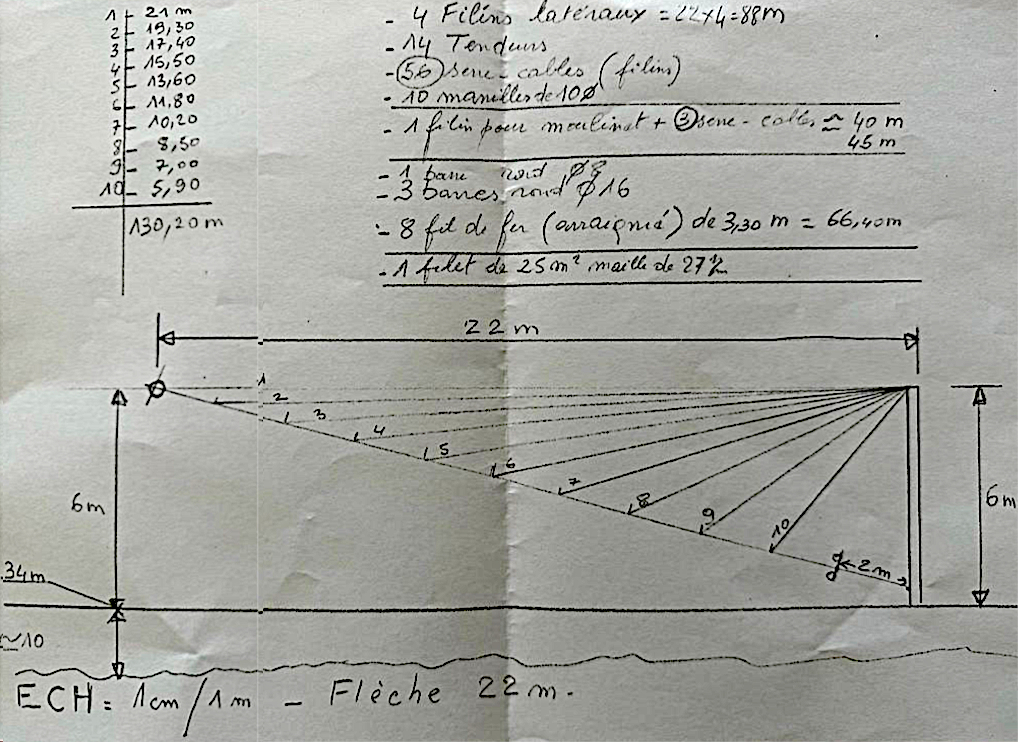 1 - 21 m
2 - 19,30
3 - 17,40
4 - 15,50
5 - 13,60
6 - 11,80
7 - 10,20
8 - 8,50
9 - 7,00
10 - 5,90
130,20 m
- 4 Filins latéraux = 22x4=88m
- 14 Tendeurs
- 56 serre-cables (filins)
- 10 manilles de 10 Ø
- 1 filin pour moulinet + 3 serre-cables ≃ 40 m
45 m
- 1 barre rond Ø 8
- 3 barres rond Ø 16
- 8 fil de fer (arraignié) de 3,30 m = 66,40m
- 1 filet de 25 m² maille de 27
22 m
1
2
3
4
5
6
7
8
9
10
6m
6m
2m
34m
≃10
ECH = 1cm/1m - Flèche 22 m.